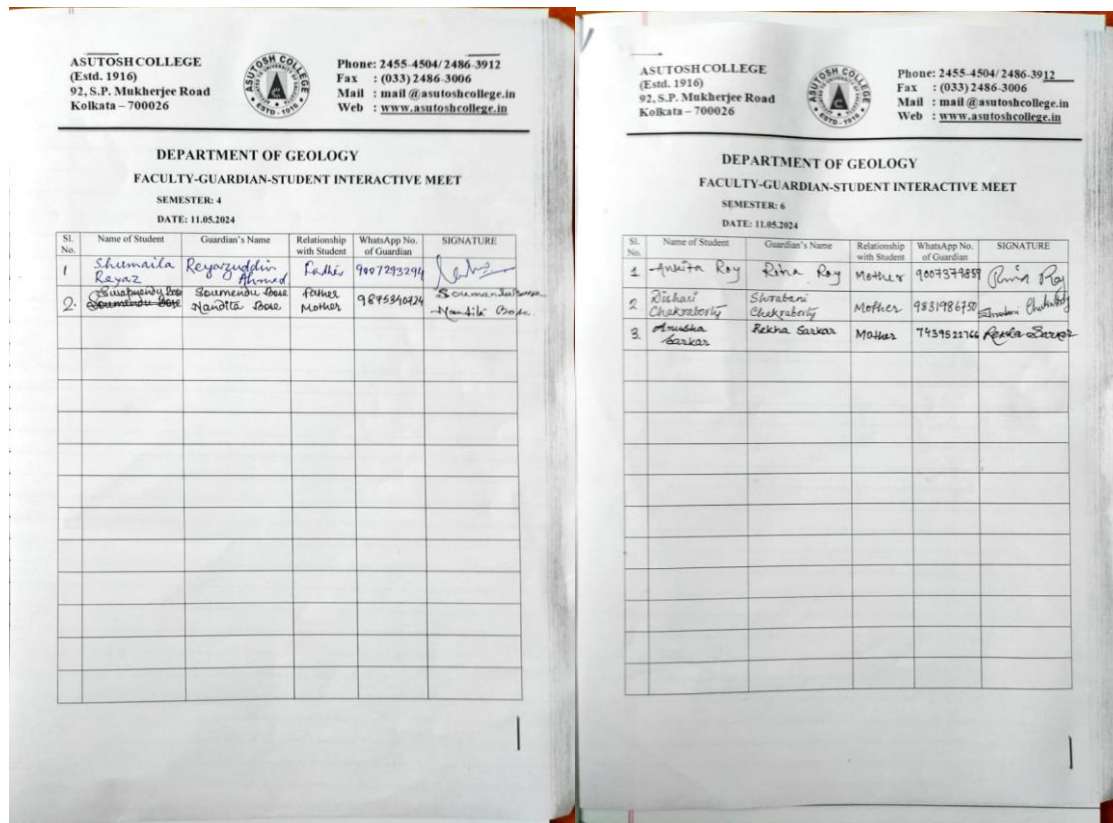 ASUTOSH COLLEGE
(Estd. 1916)
92, S.P. Mukherjee Road
Kolkata – 700026
ASUTOSH COLLEGE
ESTD - 1916
Phone: 2455-4504/ 2486-3912
Fax : (033) 2486-3006
Mail : mail @asutoshcollege.in
Web : www.asutoshcollege.in
DEPARTMENT OF GEOLOGY
FACULTY-GUARDIAN-STUDENT INTERACTIVE MEET
SEMESTER: 4
DATE: 11.05.2024
Sl. No. Name of Student Guardian's Name Relationship with Student WhatsApp No. of Guardian SIGNATURE
1 Shumaila Reyaz Reyazuddin Ahmed Father 9007293294
2. Bose Soumendu Bose Father 9875340724 Soumendu Bose
Soumendu Bose Nandita Bose Mother Nandita Bose
ASUTOSH COLLEGE
(Estd. 1916)
92, S.P. Mukherjee Road
Kolkata – 700026
ASUTOSH COLLEGE
ESTD - 1916
Phone: 2455-4504/ 2486-3912
Fax : (033) 2486-3006
Mail : mail @asutoshcollege.in
Web : www.asutoshcollege.in
DEPARTMENT OF GEOLOGY
FACULTY-GUARDIAN-STUDENT INTERACTIVE MEET
SEMESTER: 6
DATE: 11.05.2024
Sl. No. Name of Student Guardian's Name Relationship with Student WhatsApp No. of Guardian SIGNATURE
1 Ankita Roy Rina Roy Mother 9007379859 Rina Roy
2 Dishari Chakraborty Shrabani Chakraborty Mother 9831986750 Shrabani Chakraborty
3. Anuska Sarkar Rekha Sarkar Mother 7439522766 Rekha Sarkar